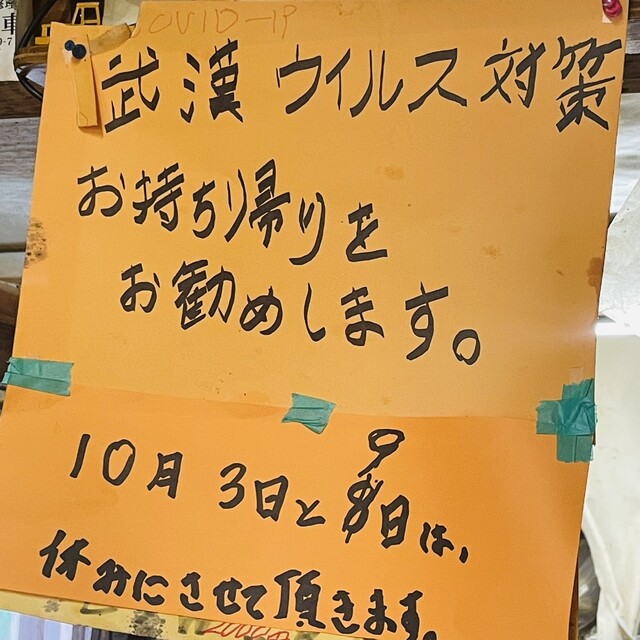 COVID-19
武漢ウイルス対策
お持ち帰りを
お勧めします。
10月3日と9日は、
休みにさせて頂きます。